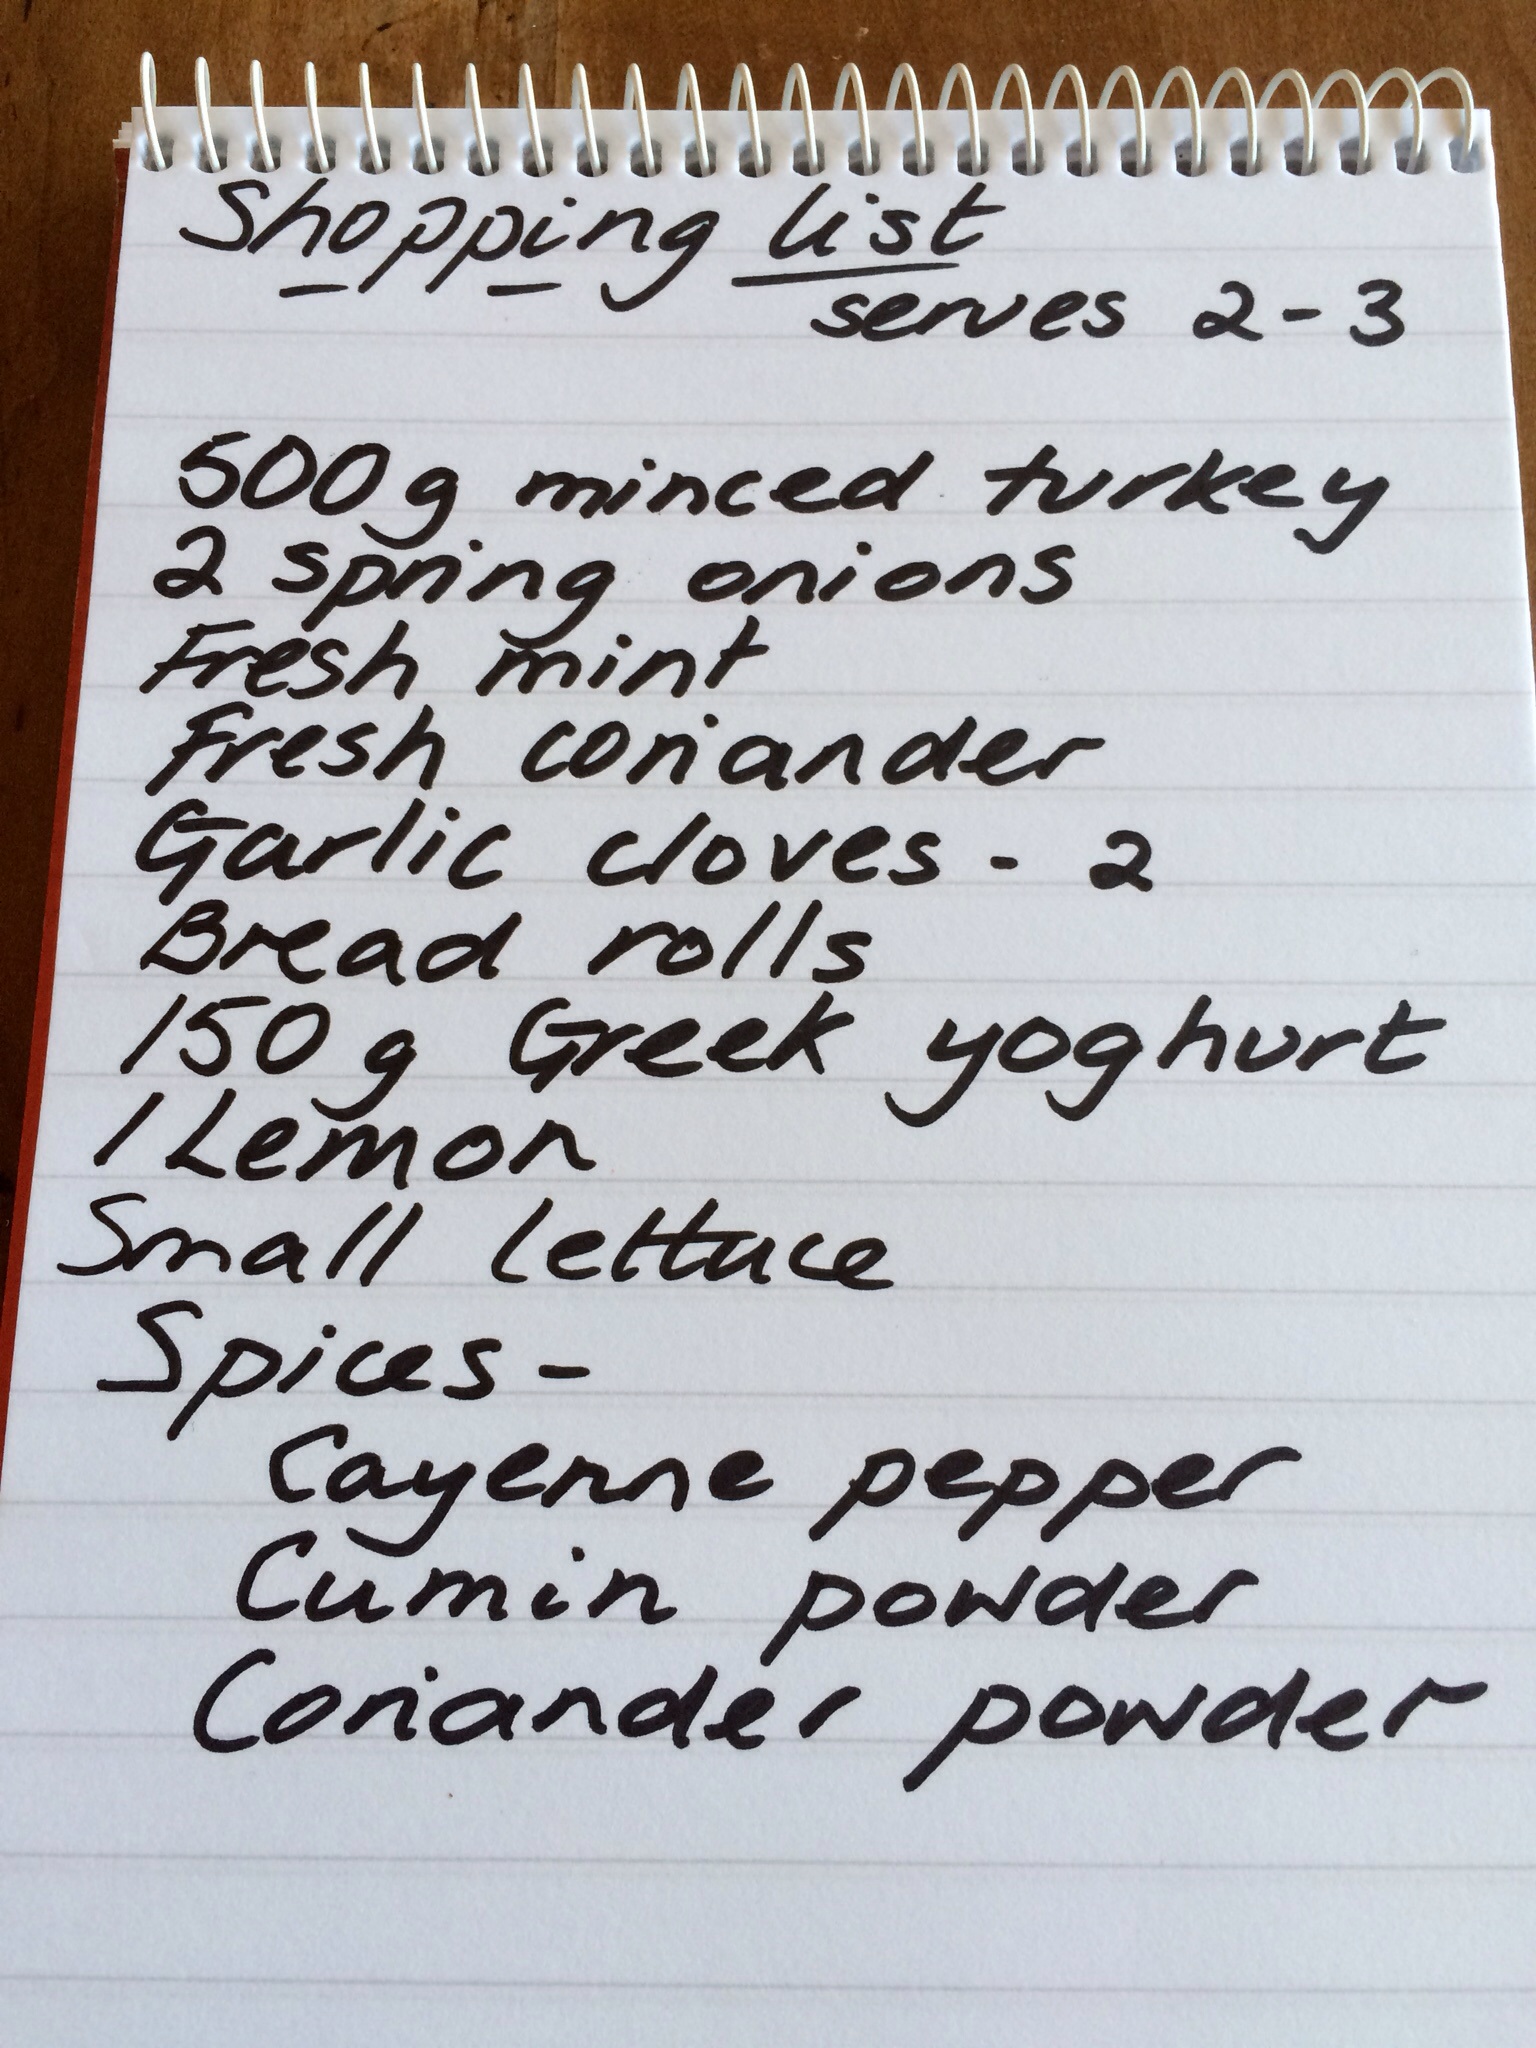 Shopping list
serves 2-3
500g minced turkey
2 spring onions
Fresh mint
Fresh coriander
Garlic cloves - 2
Bread rolls
150g Greek yoghurt
1 Lemon
Small lettuce
Spices -
Cayenne pepper
Cumin powder
Coriander powder